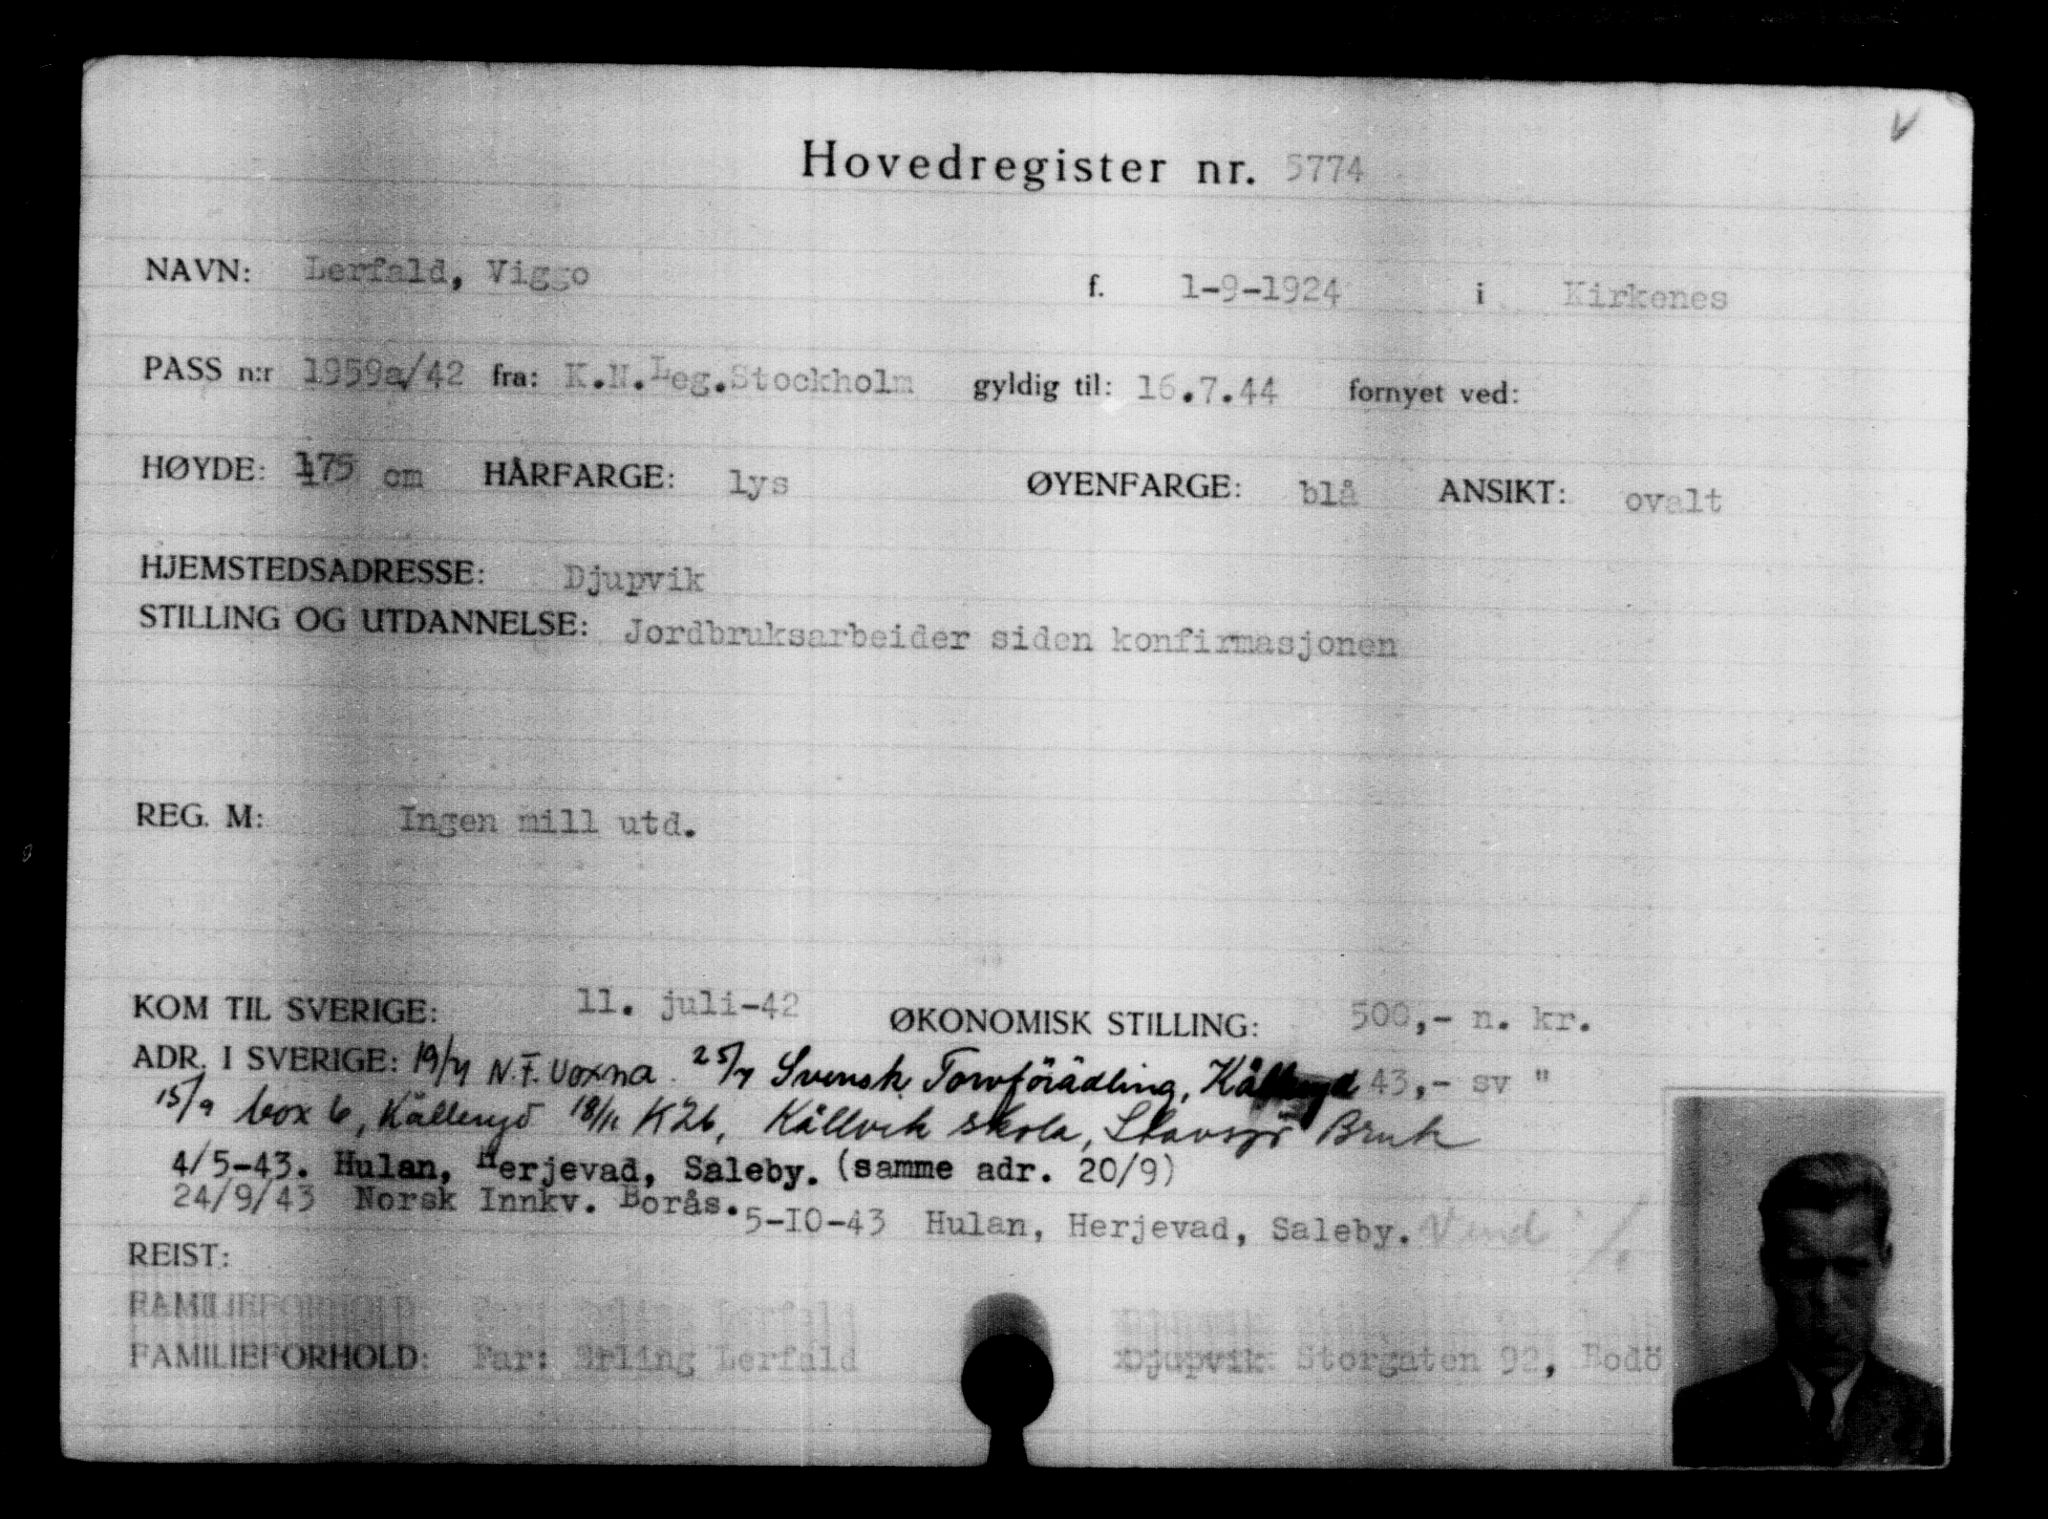 Hovedregister nr. 5774
NAVN: Lerfald, Viggo f. 1-9-1924 i Kirkenes
PASS n:r 1959a/42 fra: K.N.Leg.Stockholm gyldig til: 16.7.44 fornyet ved:
HØYDE: 175 cm HÅRFARGE: lys ØYENFARGE: blå ANSIKT: ovalt
HJEMSTEDSADRESSE: Djupvik
STILLING OG UTDANNELSE: Jordbruksarbeider siden konfirmasjonen
REG. M: Ingen mill utd.
KOM TIL SVERIGE: 11. juli-42 ØKONOMISK STILLING: 500,- n. kr.
ADR. I SVERIGE: 19/7 N.F. Voxna. 25/7 Svensk Torvförädling, Källeryd 43,- sv "
15/9 box 6, Källeryd 18/11 K26, Källvik skola, Stavsjö Bruk
4/5-43. Hulan, Herjevad, Saleby. (samme adr. 20/9)
24/9/43 Norsk Innkv. Borås. 5-10-43 Hulan, Herjevad, Saleby. Vend
REIST:
FAMILIEFORHOLD: Far: Erling Lerfald Djupvik Storgaten 92, Bodö